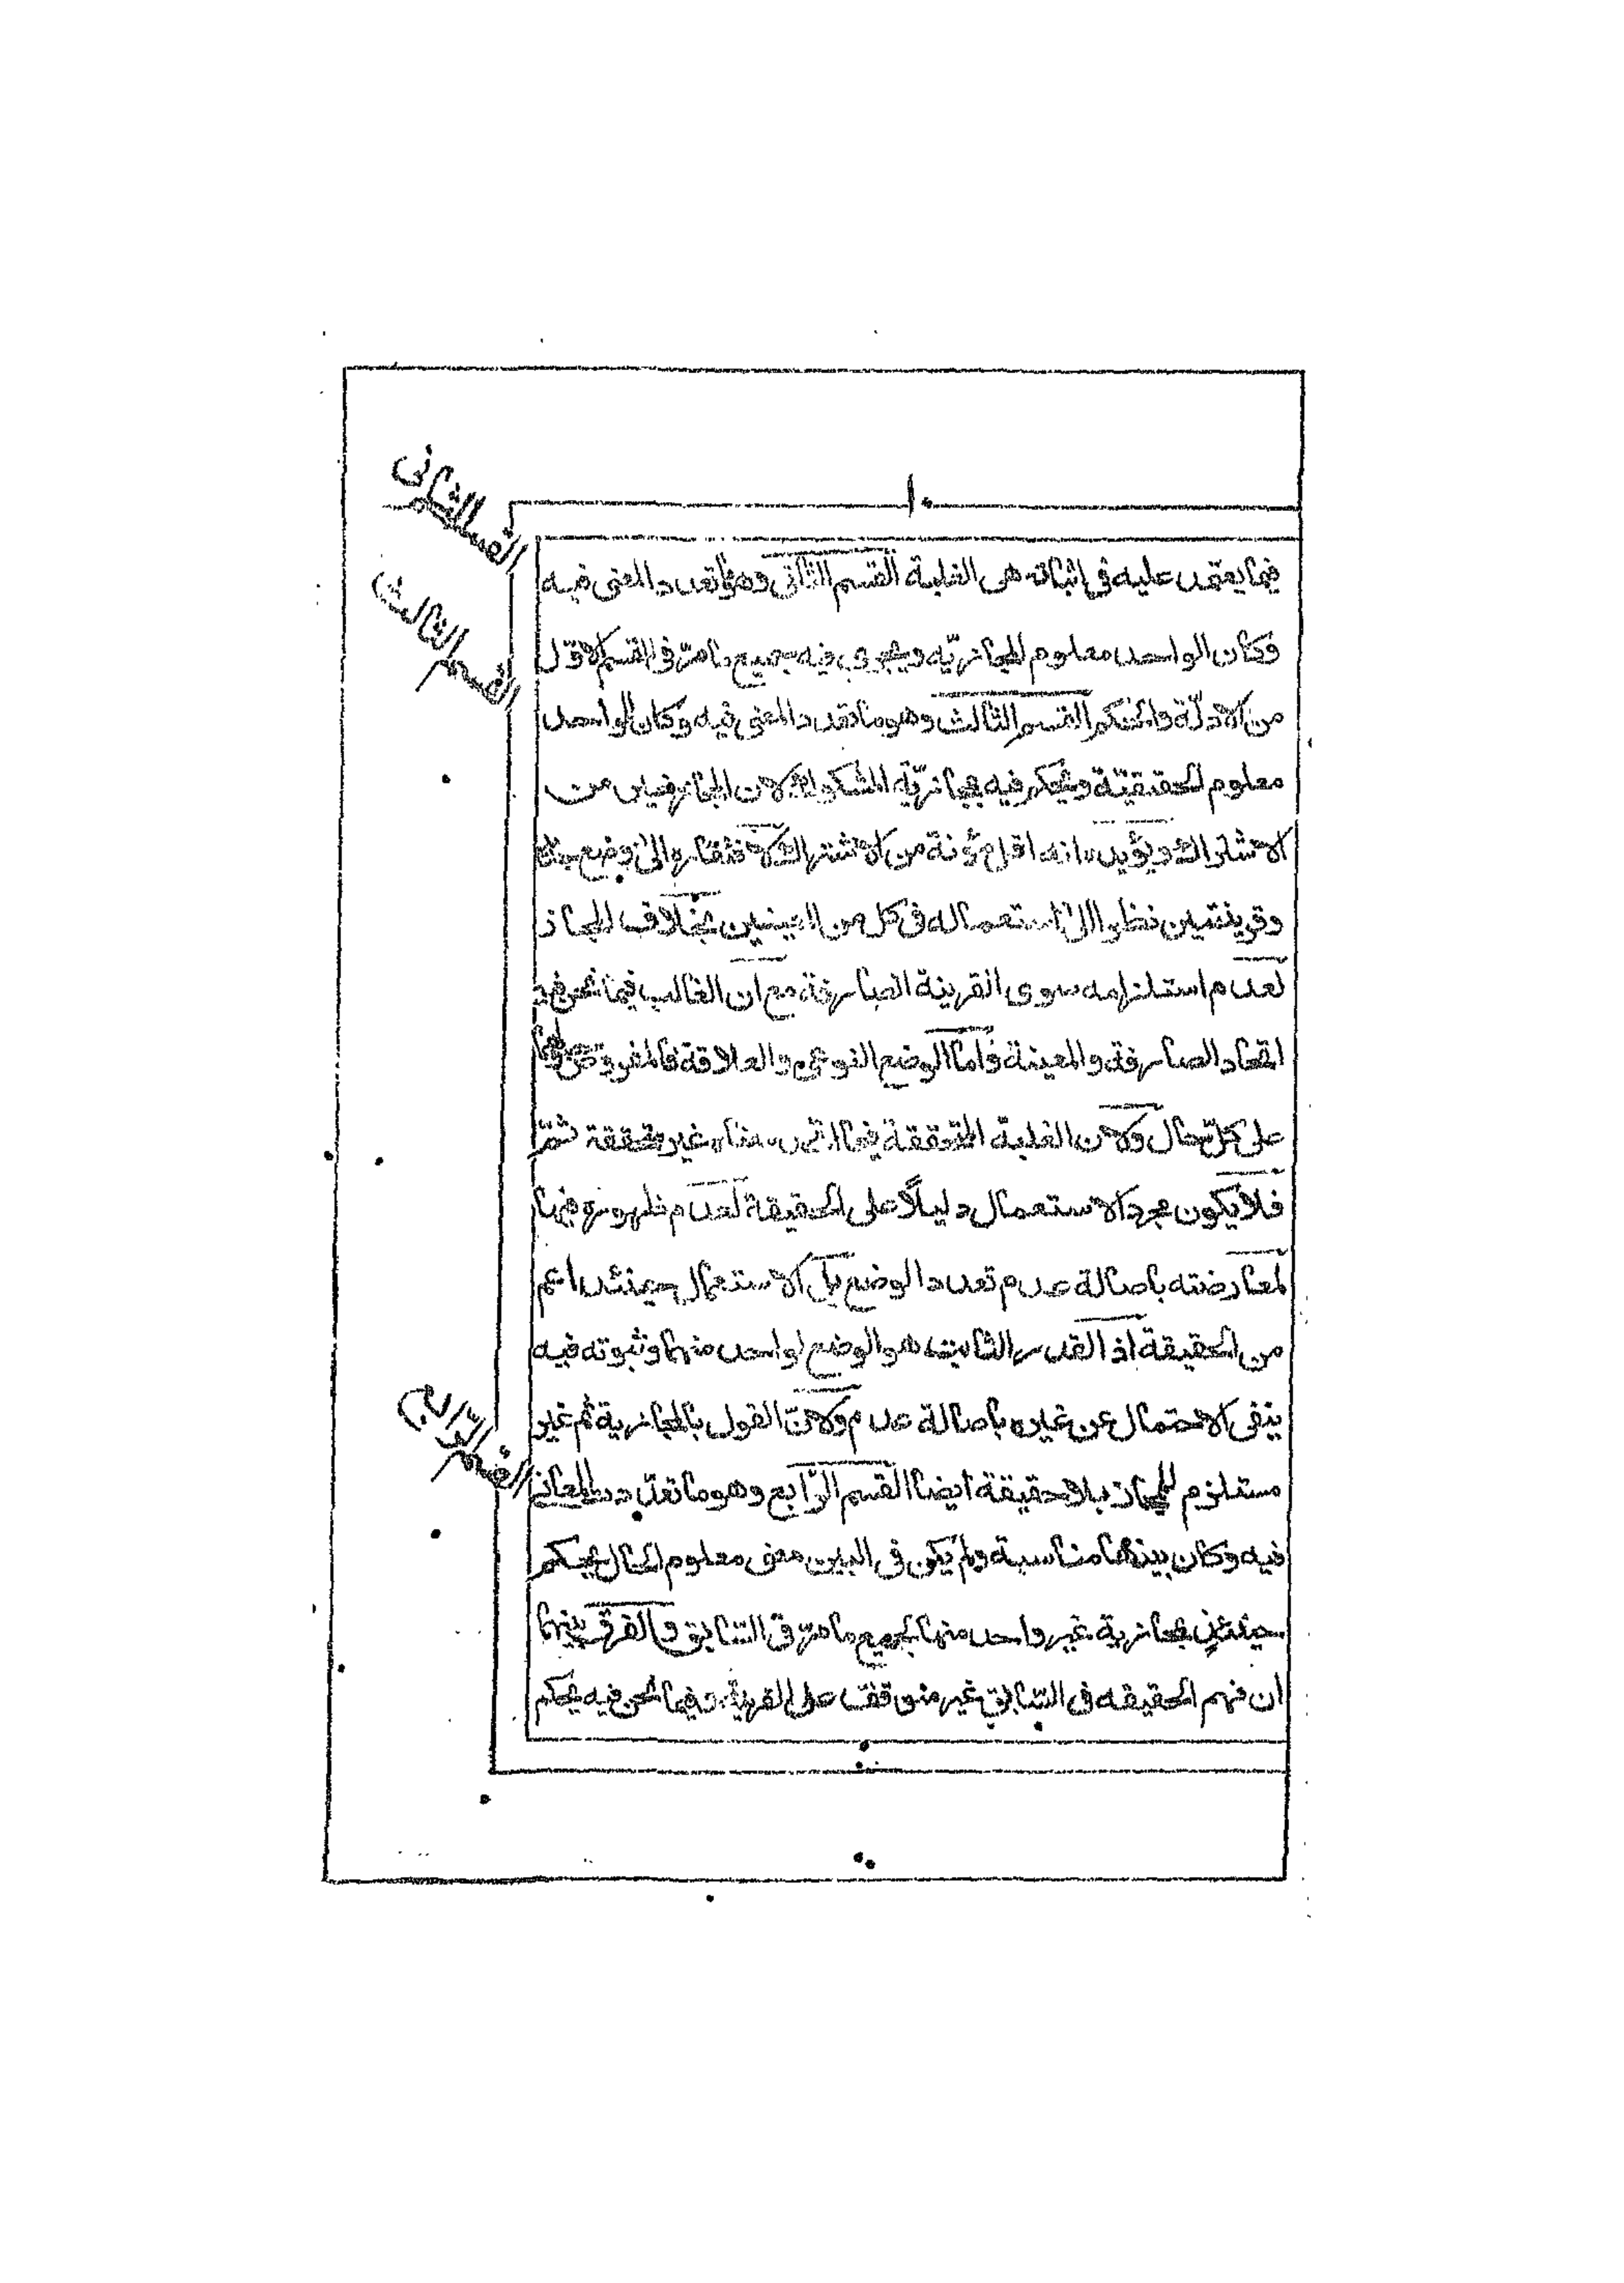 ١٠
القسم الثانى
فيما يعتمد عليه فى اثباته هى الغلبة القسم الثانى وهو ما تعدد المعنى فيه
وكان الواحد معلوم المجازيّة ويجرى فيه جميع ما مرّ فى القسم الاوّل
القسم الثالث
من الادلّة والحكم القسم الثالث وهو ما تعدد المعنى فيه وكان الواحد
معلوم الحقيقيّة ويحكم فيه بمجازيّة المشكوك لان المجاز خير من
الاشتراك ويؤيده انه اقل مؤنة من الاشتراك لافتقاره الى وضع
وقرينتين نظرا الى استعماله فى كل من المعينين بخلاف المجاز
لعدم استلزامه سوى القرينة الصارفة مع ان الغالب فيما نحن فيه
اتحاد الصارفة والمعينة واما الوضع النوعى والعلاقة فالمفروض
على كلّ حال ولان الغلبة المتحققة فيما اتحد معناه غير متحققة ثمّ
فلا يكون مجرد الاستعمال دليلًا على الحقيقة لعدم ظهوره فيها
لمعارضته باصالة عدم تعدد الوضع بل الاستعمال حينئذ اعم
من الحقيقة اذ القدر الثابت هو الوضع لواحد منهما وثبوته فيه
ينفى الاحتمال عن غيره باصالة عدمه ولانّ القول بالمجازية ثم غير
القسم الرّابع
مستلزم للمجاز بلا حقيقة ايضا القسم الرّابع وهو ما تعدّد المعانى
فيه وكان بينهما مناسبة ولم يكن فى البين معنى معلوم الحال يحكم
حينئذ بمجازية غير واحد منهما بجميع ما مرّ فى السّابق والفرق بينهما
ان فهم الحقيقه فى السّابق غير متوقف على القرينة وفيما نحن فيه يحكم